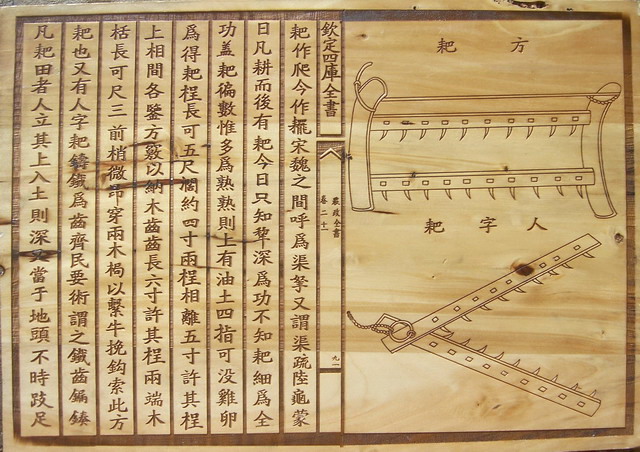 方耙
人字耙
欽定四庫全書
農政全書
卷二十一
耙作爬今作擺宋魏之間呼爲渠挐又謂渠疏陸龜蒙
日凡耕而後有耙今日只知犂深爲功不知耙細爲全
功盖耙徧數惟多爲熟熟則上有油土四指可没雞卵
爲得耙桯長可五尺闊約四寸兩桯相離五寸許其桯
上相間各鑿方竅以納木齒齒長六寸許其桯兩端木
栝長可尺三前梢微昂穿兩木梮以繫牛挽鈎索此方
耙也又有人字耙鑄鐵爲齒齊民要術謂之鐵齒
凡耙田者人立其上入土則深又當于地頭不時跂足